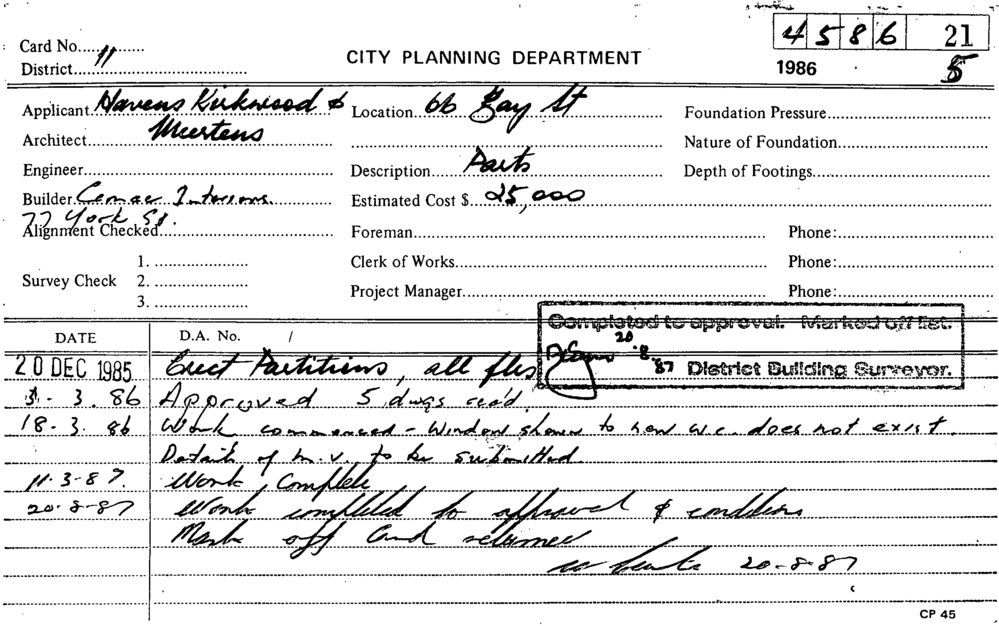 4 5 8 6 21
Card No. 11
CITY PLANNING DEPARTMENT
District
1986 5
Applicant Havens Kirkwood &
Location 66 Bay St
Foundation Pressure
Architect Meertens
Nature of Foundation
Engineer
Description Parts
Depth of Footings
Builder Cemac Interiors.
Estimated Cost $ 25,000
77 York St.
Alignment Checked
Foreman Phone:
1.
Clerk of Works Phone:
Survey Check 2.
Project Manager Phone:
3.
Completed to approval. Marked off list.
20.8.87 District Building Surveyor.
DATE D.A. No. /
20 DEC 1985 Erect Partitions, all flrs
3. 3. 86 Approved 5 dwgs rec'd.
18. 3. 86 Work commenced - Window shown to new w.c. does not exist.
Details of m.v. to be submitted.
11.3.87. Work Complete
20.8.87 Work completed to approval & conditions
Mark off Card returned
20-8-87
CP 45